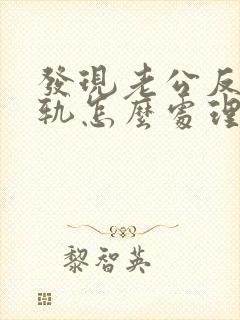 發現老公反
軌怎麼處理
黎智英